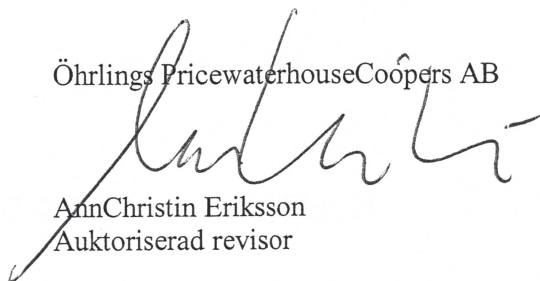 Öhrlings PricewaterhouseCoopers AB
AnnChristin Eriksson
Auktoriserad revisor